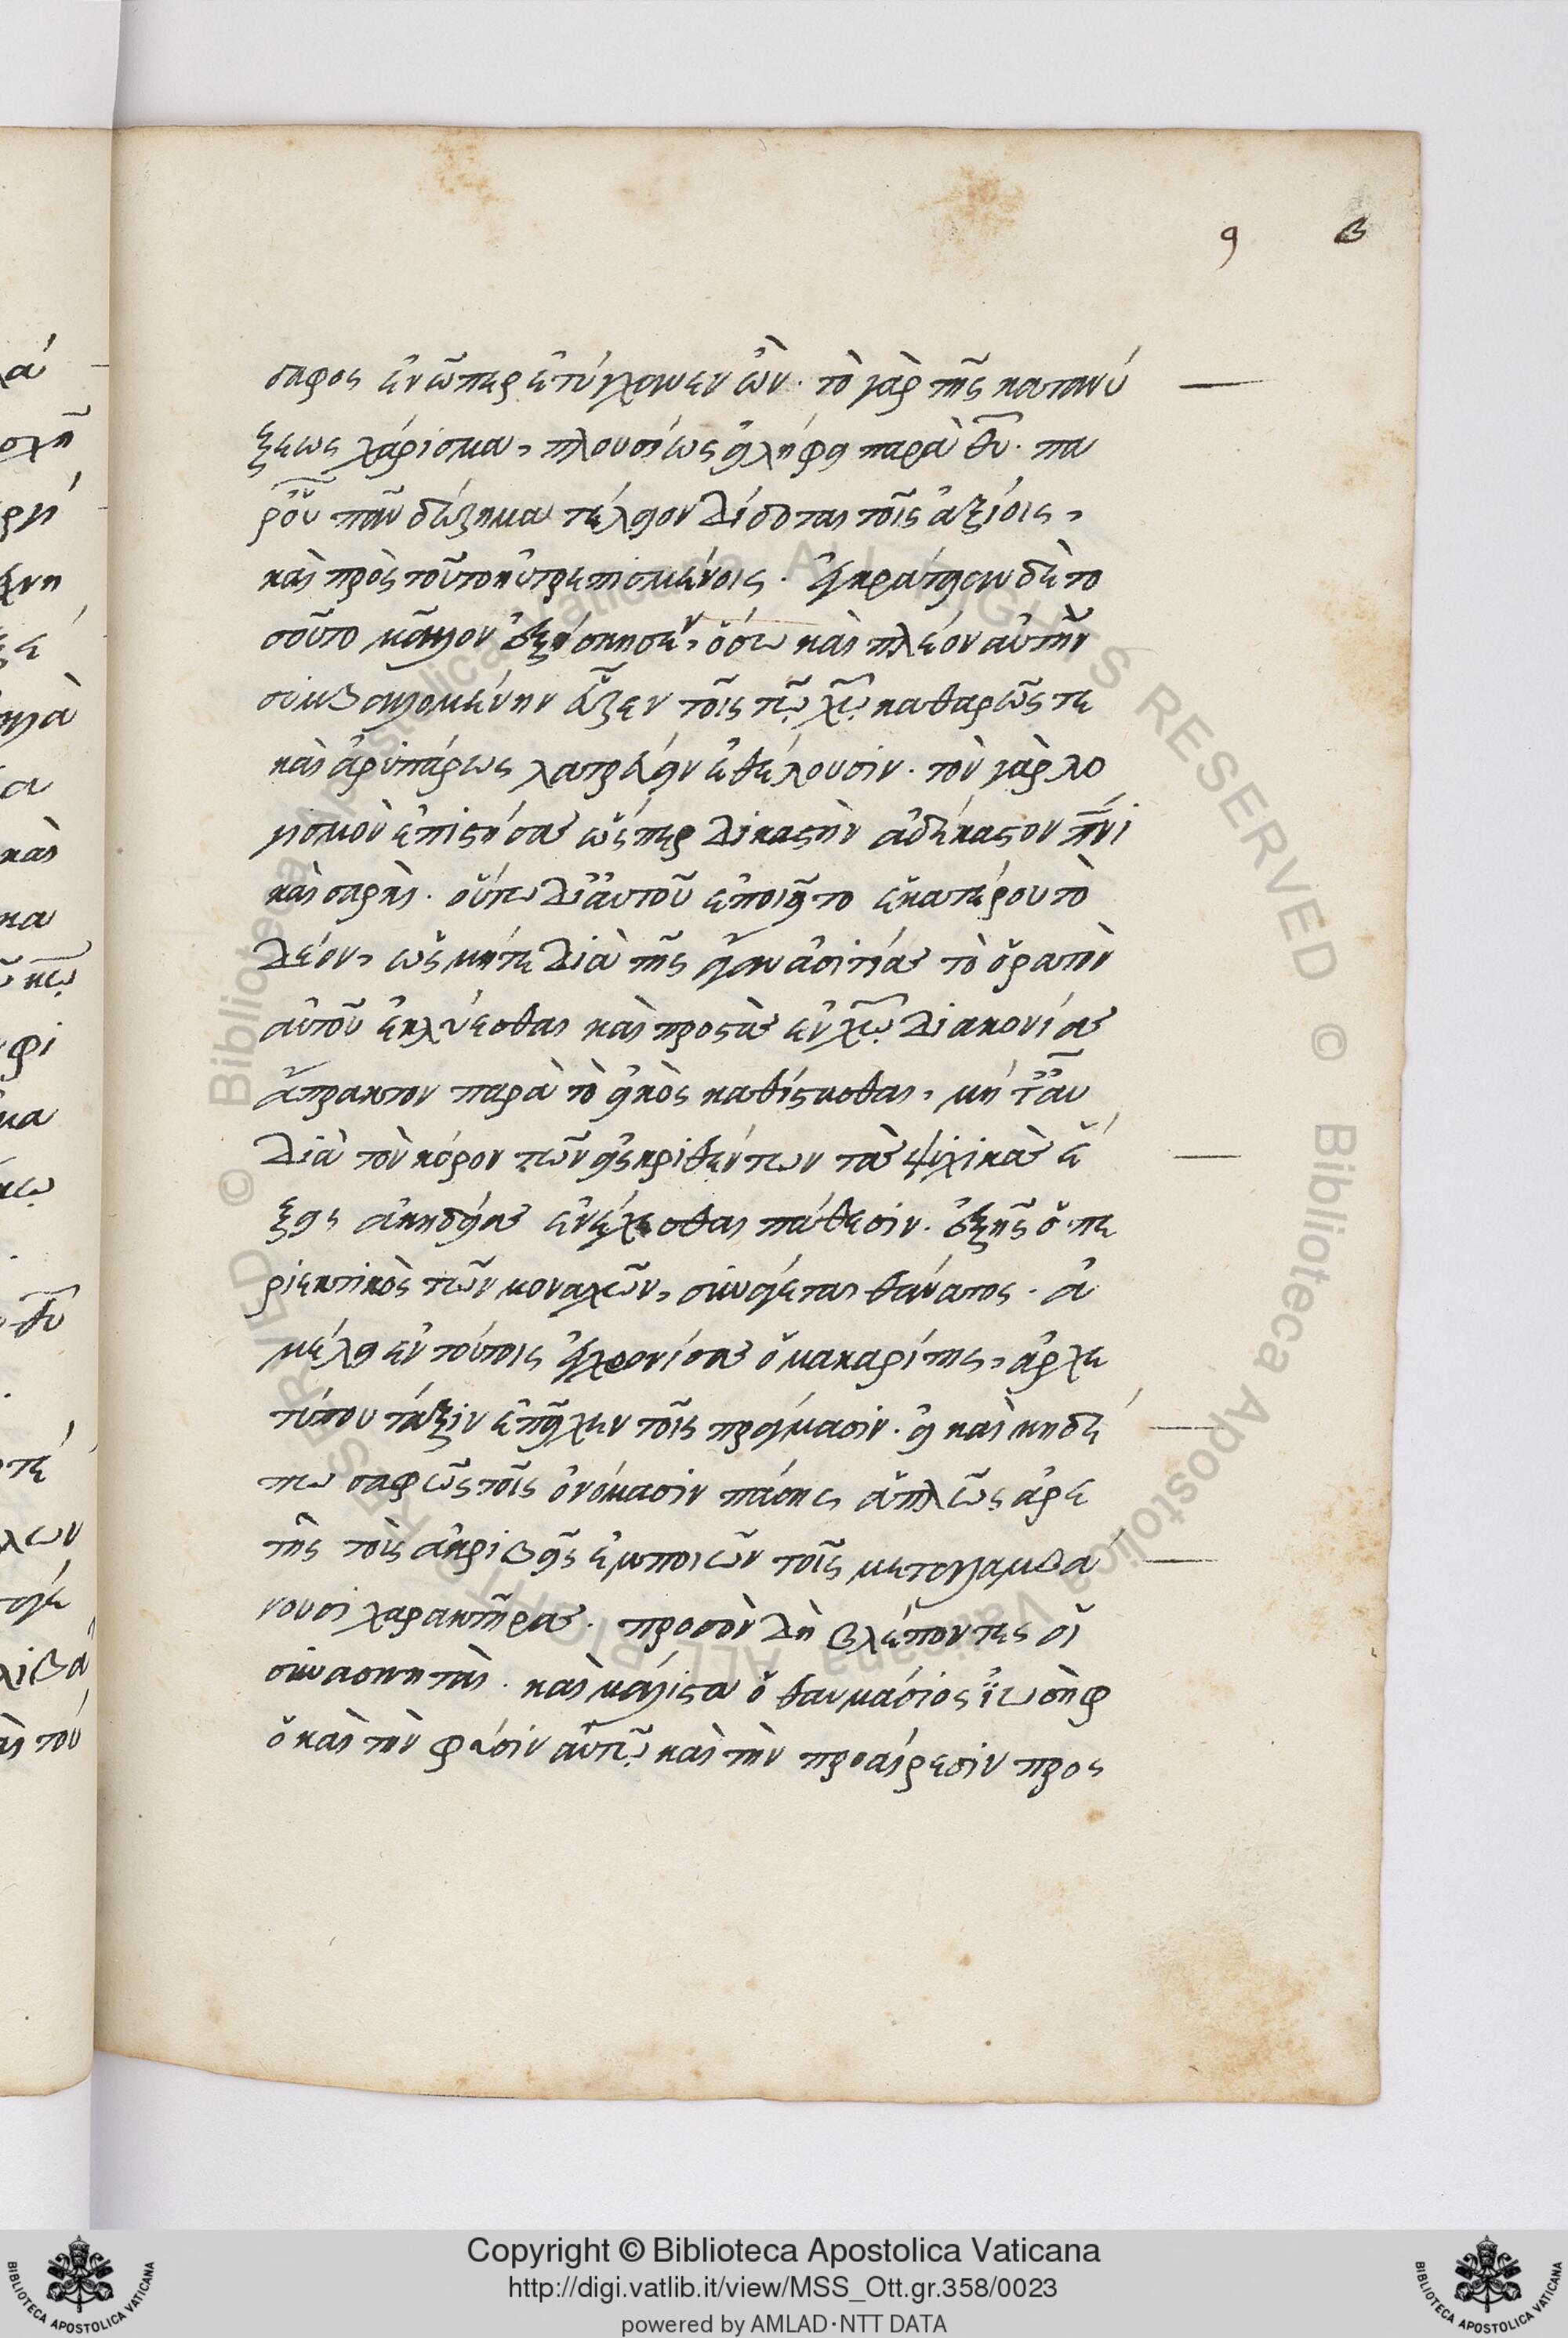 9 β
δαφος ἐν ὧπερ ἐτύγχανεν ὢν. τὸ γὰρ τῆς κατανύ
ξεως χάρισμα, πλουσίως εἰλήφει παρὰ θυ. πα
ρ' οὗ πᾶν δώρημα τέλειον δίδοται τοῖς ἀξίοις,
καὶ πρὸς τοῦτο ηὐτρεπισμένοις. ἐγκράτειαν δὲ το
σοῦτο μᾶλλον ἐξήσκησεν, ὅσω καὶ πλέον αὐτὴν
συμβαλλομένην εὗρεν τοῖς τῶ χω καθαρῶς τε
καὶ ἀρυπάρως λατρεύειν ἐθέλουσιν. τὸν γὰρ λο
γισμὸν ἐπιστήσας ὥσπερ δικαστὴν ἀδέκαστον πνι
καὶ σαρκὶ. οὕτω δι' αὐτοῦ ἐποιεῖτο ἑκατέρου τὸ
δέον, ὡς μήτε διὰ τῆς ἄγαν ἀσιτίας τὸ ὁρατὸν
αὐτοῦ ἐκλύεσθαι καὶ πρὸς τὰς ἐν χω διακονίας
ἄπρακτον παρὰ τὸ εἰκὸς καθίστασθαι, μήτ' αὖ
διὰ τὸν κόρον τῶν εἰσκριθέντων τὰς ψυχικὰς ἕ
ξεις ἀκηδείας ἐνέχεσθαι πάθεσιν. ἐξ ἧς ὁ πε
ριεκτικὸς τῶν μοναχῶν, συνάγεται θάνατος. ἀ
μέλει ἐν τούτοις ἐγχρονίσας ὁ μακαρίτης, ἀρχε
τύπου τάξιν ἐπεῖχεν τοῖς πράγμασιν. εἰ καὶ μηδέ
πω σαφῶς τοῖς ὀνόμασιν πάσης ἁπλῶς ἀρε
τῆς τοὺς ἀκριβεῖς ἐμποιῶν τοῖς μεταλαμβά
νουσι χαρακτῆρας. πρὸς ὃν δὴ βλέποντες οἱ
συνασκηταὶ. καὶ μάλιστα ὁ θαυμάσιος ἰωσὴφ
ὁ καὶ τὴν φύσιν αὐτῶ καὶ τὴν προαίρεσιν προς
Copyright © Biblioteca Apostolica Vaticana
http://digi.vatlib.it/view/MSS_Ott.gr.358/0023
powered by AMLAD·NTT DATA